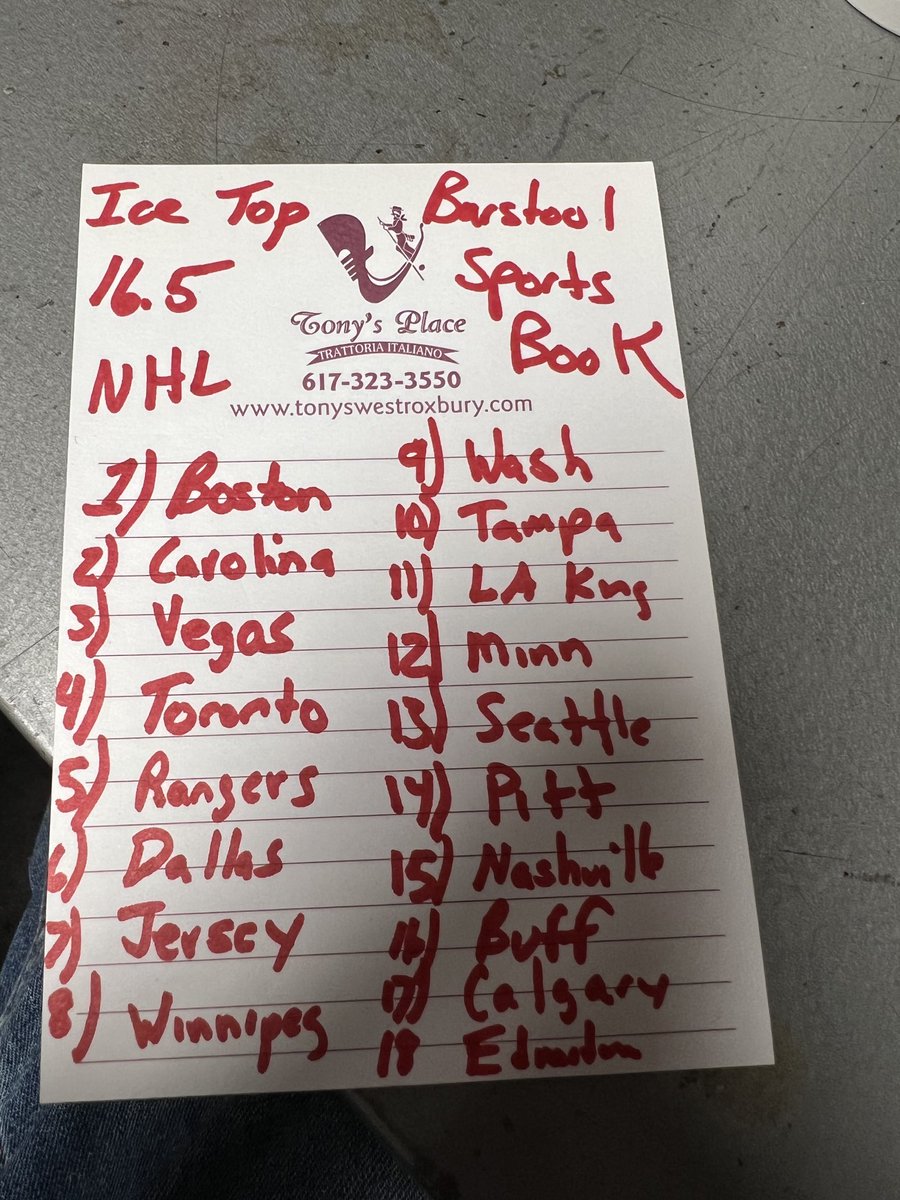 Ice Top
16.5
NHL
Barstool
Sports
Book
Tony's Place
TRATTORIA ITALIANO
617-323-3550
www.tonyswestroxbury.com
1) Boston
2) Carolina
3) Vegas
4) Toronto
5) Rangers
6) Dallas
7) Jersey
8) Winnipeg
9) Wash
10) Tampa
11) LA King
12) Minn
13) Seattle
14) Pitt
15) Nashville
16) Buff
17) Calgary
18 Edmonton